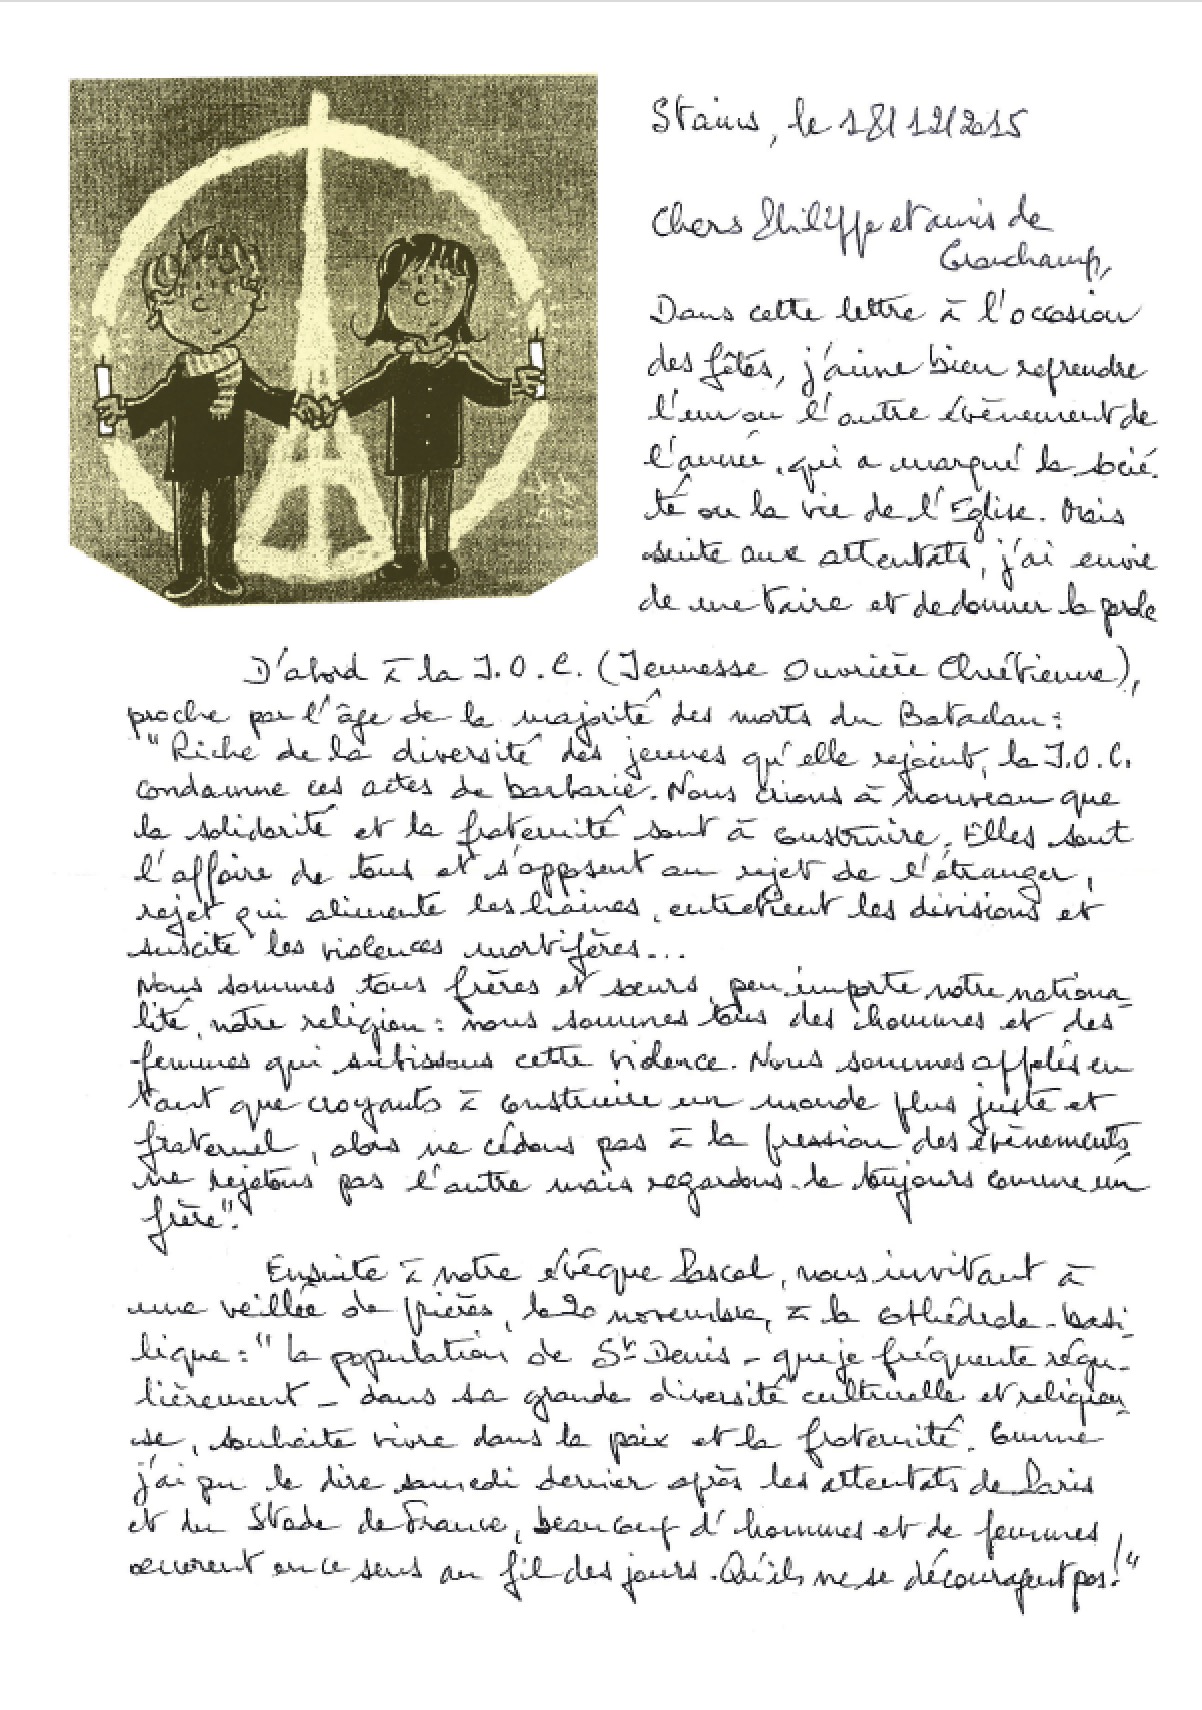 Stains, le 18/12/2015
Chers Philippe et amis de
Grandchamp,
Dans cette lettre à l'occasion
des fêtes, j'aime bien reprendre
l'un ou l'autre évènement de
l'année, qui a marqué la socié-
té ou la vie de l'Eglise. Mais
suite aux attentats, j'ai envie
de me taire et de donner la parole
D'abord à la J.O.C. (Jeunesse Ouvrière Chrétienne),
proche par l'âge de la majorité des morts du Bataclan :
"Riche de la diversité des jeunes qu'elle rejoint, la J.O.C.
condamne ces actes de barbarie. Nous crions à nouveau que
la solidarité et la fraternité sont à construire. Elles sont
l'affaire de tous et s'opposent au rejet de l'étranger,
rejet qui alimente les haines, entretient les divisions et
suscite les violences mortifères...
Nous sommes tous frères et sœurs, peu importe notre nationa-
lité, notre religion : nous sommes tous des hommes et des
femmes qui subissons cette violence. Nous sommes appelés en
tant que croyants à construire un monde plus juste et
fraternel, alors ne cédons pas à la pression des évènements,
ne rejetons pas l'autre mais regardons-le toujours comme un
frère".
Ensuite à notre évêque Pascal, nous invitant à
une veillée de prières, le 20 novembre, à la cathédrale-basi-
lique : "La population de St Denis - que je fréquente régu-
lièrement - dans sa grande diversité culturelle et religieu-
se, souhaite vivre dans la paix et la fraternité. Comme
j'ai pu le dire samedi dernier après les attentats de Paris
et du Stade de France, beaucoup d'hommes et de femmes
œuvrent en ce sens au fil des jours. Qu'ils ne se découragent pas !"